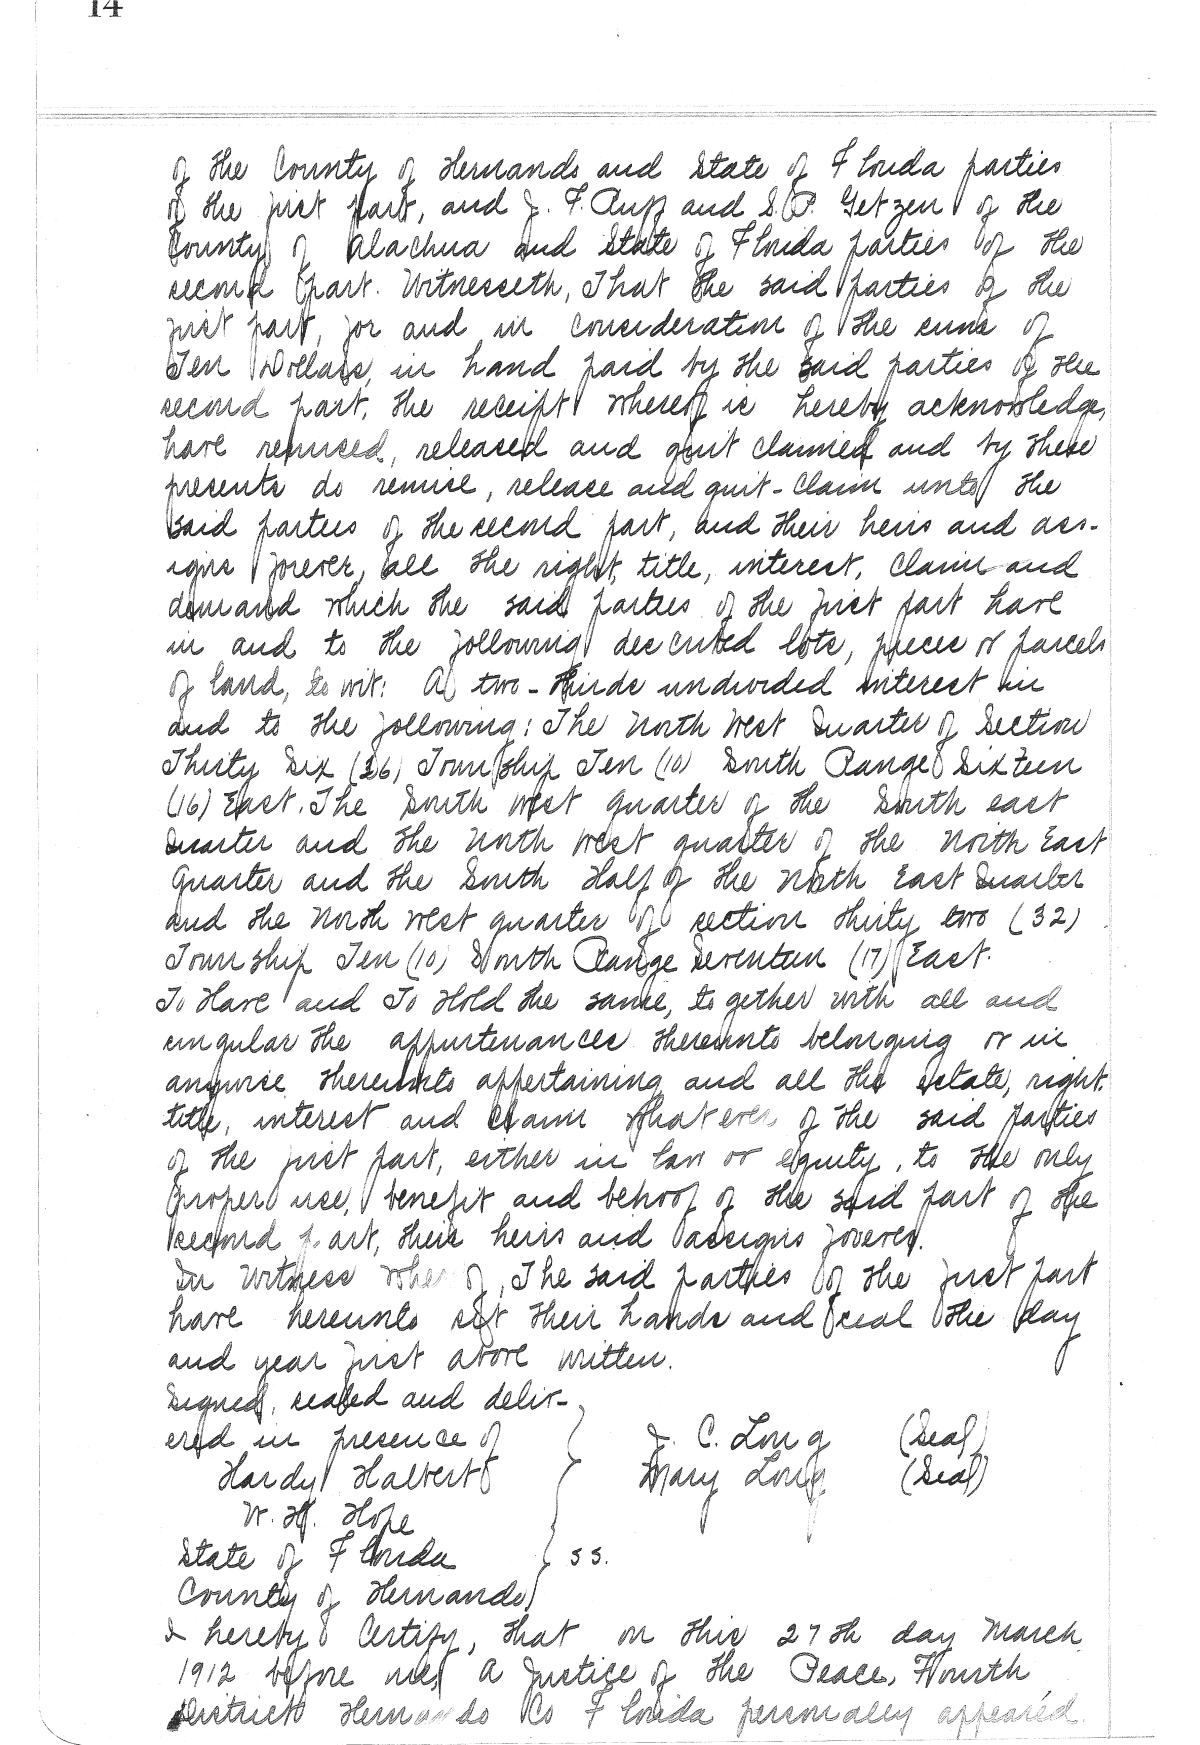 14
of the County of Hernando and State of Florida parties
of the first part, and J. F. Ruff and S. P. Getzen of the
County of Alachua and State of Florida parties of the
second part. Witnesseth, That the said parties of the
first part, for and in consideration of the sum of
Ten Dollars, in hand paid by the said parties of the
second part, the receipt whereof is hereby acknowledge,
have remised, released and quit claimed and by these
presents do remise, release and quit-claim unto the
said parties of the second part, and their heirs and ass-
igns forever, all the right, title, interest, claim and
demand which the said parties of the first part have
in and to the following described lots, pieces or parcels
of land, to wit: A two-thirds undivided interest in
and to the following: The North West Quarter of Section
Thirty Six (36) Township Ten (10) South Range Sixteen
(16) East. The South West quarter of the South east
Quarter and the North West quarter of the North East
Quarter and the South Half of the North East Quarter
and the North West quarter of section thirty two (32)
Township Ten (10) South Range Seventeen (17) East.
To Have and To Hold the same, together with all and
singular the appurtenances thereunto belonging or in
anywise thereunto appertaining and all the estate, right
title, interest and claim whatever of the said parties
of the first part, either in law or equity, to the only
proper use, benefit and behoof of the said part of the
second part, their heirs and assigns forever.
In Witness Whereof, The said parties of the first part
have hereunto set their hands and seal the day
and year first above written.
Signed, sealed and deliv-
ered in presence of J. C. Long (Seal)
Hardy Halbert Mary Long (Seal)
W. H. Hope
State of Florida } ss.
County of Hernando
I hereby Certify, that on this 27th day March
1912 before me, a Justice of the Peace, Fourth
District Hernando Co Florida personally appeared.